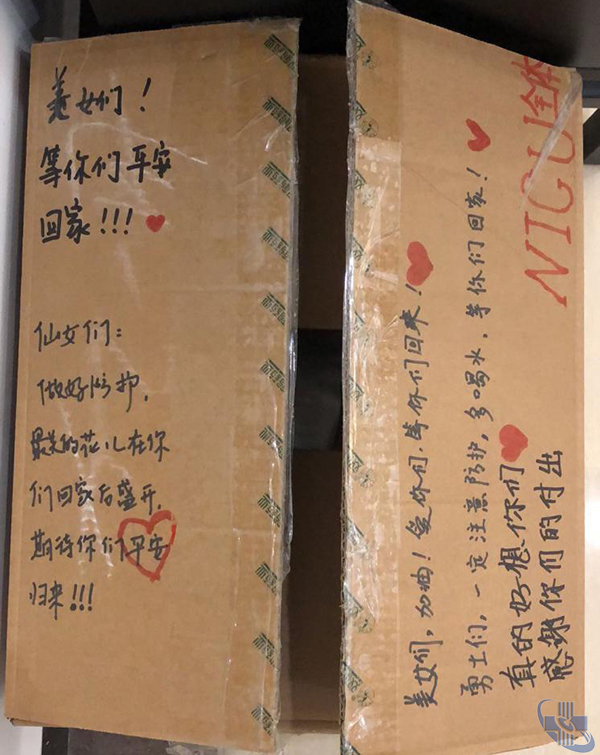 美女们！
等你们平安
回家!!!
仙女们：
做好防护，
最美的花儿在你
们回家后盛开，
期待你们平安
归来!!!
美女们，加油！爱你们，等你们回来！
勇士们，一定注意防护，多喝水，等你们回家！
真的好想你们
感谢你们的付出
NICU全体